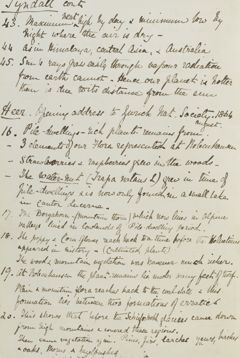 Tyndall cont.
43. Maximum heat high by day & minimum low by
night where the air is dry —
44 as in Himalaya, central Asia, & Australia
45. Sun's rays pass easily through vapour radiation
from earth cannot — Hence our planet is hotter
than is due to its distance from the sun
Heer. Opening address to Zurich Nat. Society. 1864
August.
16. Pile-dwellings — rich plants remains from.
— 3 elements of our Flora represented at Robenhausen
— Strawberries & raspberries grew in the woods —
— The water-nut (Trapa natans L) grew in time of
Pile dwellings & is now only found in a small lake
in canton Lucerne.
17. The Bergföhre (Mountain thorn) which now lives in alpine
valleys lived in lowlands of Pile dwelling period.
18. The poppy & Corn flower reach back to a time before the
appeared in history — (Cultivated plants)
The woods & mountain vegetation was however much richer.
19. At Robenhausen the plant remains lie under many feet of peat.
Plain & mountain flora reaches back to the and this
formation lies between two formations of erratics
20. This shows that before the glaciers came down
from high mountains & covered these regions.
Then same vegetation grew. Pines, firs, larches, yews, birches
oaks,